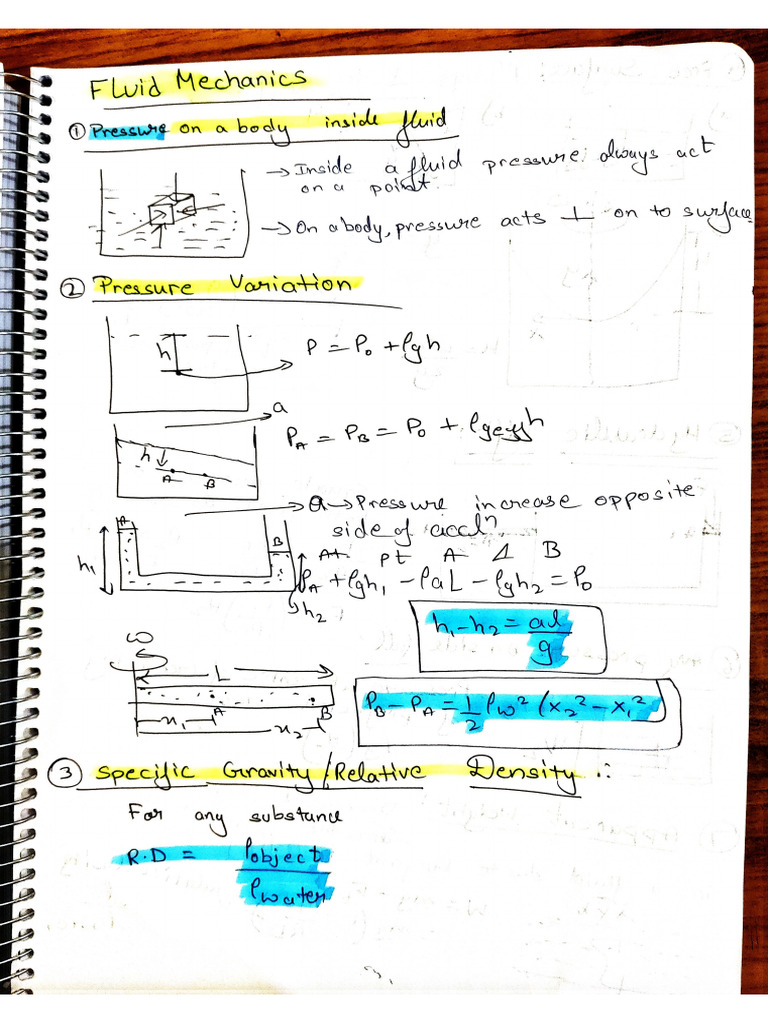 Fluid Mechanics
① Pressure on a body inside fluid
→ Inside a fluid pressure always act
on a point.
→ On a body, pressure acts ⊥ on to surface
② Pressure Variation
h
P = P₀ + ρgh
a
h
A B
P_A = P_B = P₀ + ρg_eff h
a → Pressure increase opposite
side of acclⁿ
A
B
h₁
h₂
At pt A & B
P_A + ρgh₁ - ρaL - ρgh₂ = P₀
h₁ - h₂ = al/g
ω
L
x₁ A
x₂ B
P_B - P_A = 1/2 ρω² (x₂² - x₁²)
③ Specific Gravity/Relative Density :-
For any substance
R.D = ρobject/ρwater